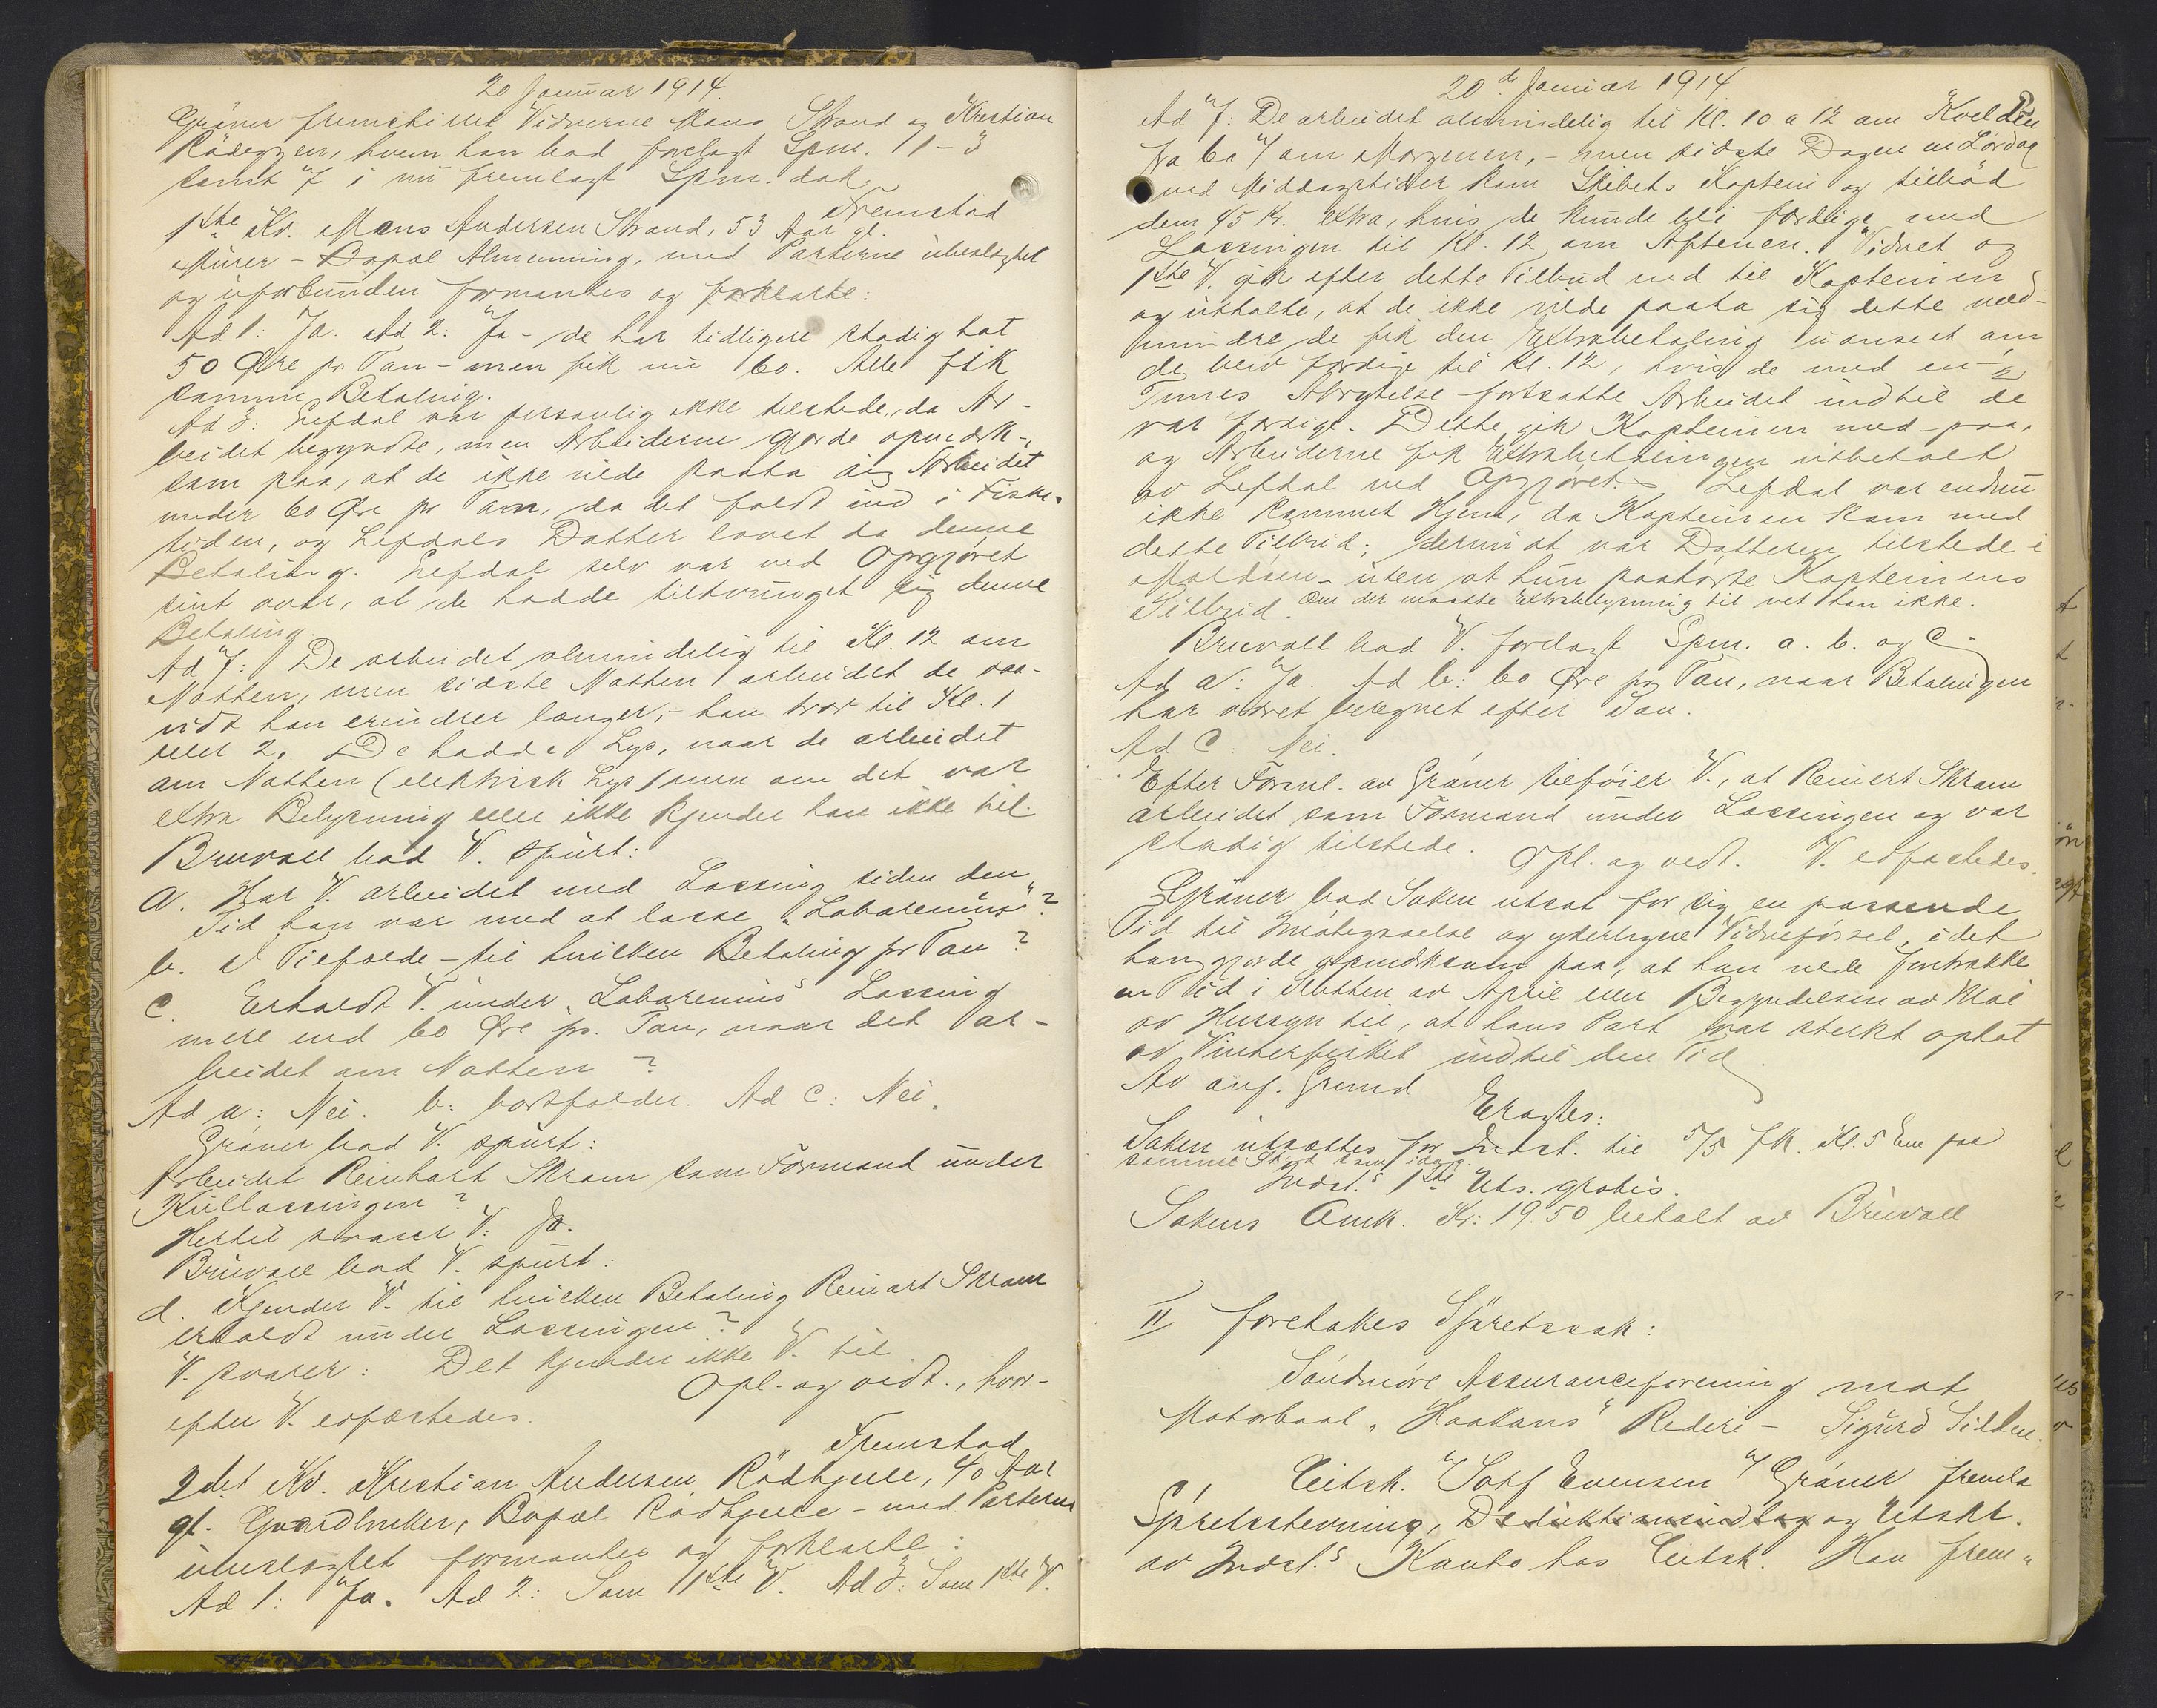 20 Januar 1914.
Gräner fremstillet Vidnerne Mons Strand og Kristian
Rødeggen, hvem han bad forelagt Spm. 1-3
samt 7 i nu fremlagt Spm. dok.
Fremstod
1ste Kv. Mons Andersen Strand, 53 Aar gl.
Murer - Bopæl Almenning, med Parterne ubeslægtet
og uforbunden formantes og forklarte:
Ad 1: Ja. Ad 2: Ja - de har tidligere stadig hat
50 Øre pr. Ton - men fik nu 60. Alle fik
samme Betaling.
Ad 3: Lefdal var personlig ikke tilstede, da Ar-
beidet begyndte, men Arbeiderne gjorde opmerk-
som paa, at de ikke vilde paata sig Arbeidet
under 60 Øre pr Ton, da det faldt ind i Fiske-
tiden, og Lefdals Datter lovet da denne
Betaling. Lefdal selv var ved Opgjøret
sint over, at de hadde tiltvunget sig denne
Betaling.
Ad 7: De arbeidet almindelig til Kl. 12 om
Natten, men sidste Natten arbeidet de saa-
vidt han erindrer længer, - han tror til Kl. 1
eller 2. De hadde Lys, naar de arbeidet
om Natten (elektrisk Lys) men om det var
extra Belysning eller ikke kjender han ikke til.
Bruvoll bad V. spurt:
a. Har V. arbeidet med Lossing siden den
Tid han var med at losse "Labarenus"?
b. I Tilfælde - til hvilken Betaling pr Ton?
c. Erholdt V. under "Labarenus" Lossing
mere end 60 Øre pr. Ton, naar det ar-
beidet om Natten?
Ad a: Nei. b: bortfalder. Ad c: Nei.
Gräner bad V. spurt:
Arbeidet Reinhart Skram som Formand under
Kullossingen?
Hertil svarer V: Ja.
Bruvoll bad V. spurt:
d. Kjender V. til hvilken Betaling Reinart Skram
erholdt under Lossingen?
V. svarer: Det kjender ikke V. til.
Opl. og vedt., hvor-
efter V. edfæstedes.
Fremstod
2det Kv. Kristian Andersen Rødkjelle, 40 Aar
gl. Gaardbruker, Bopæl Rødkjelle - med Parterne
ubeslægtet formantes og forklarte:
Ad 1: Ja. Ad 2: Som 1ste V. Ad 3: Som 1ste V.
20de Januar 1914
Ad 7: De arbeidet almindelig til Kl. 10 a 12 om Kvelden
fra 6 a 7 om Morgenen, - men sidste Dagen en Lørdag
ved Middagstider kom Skibets Kaptein og tilbød
dem 45 Kr. extra, hvis de kunde bli færdige med
Lossingen til Kl. 12 om Aftenen. Vidnet og
1ste V. gik efter dette Tilbud ned til Kapteinen
og uttalte, at de ikke vilde paata sig dette med-
mindre de fik den Extrabetaling uanseet om
de blev færdige til Kl. 12, hvis de med en ½
Times Avbrytelse fortsatte Arbeidet indtil de
var færdige. Dette gik Kapteinen med paa,
og Arbeiderne fik Extrabetalingen utbetalt
av Lefdal ved Opgjøret. Lefdal var endnu
ikke kommet Hjem, da Kapteinen kom med
dette Tilbud; derimot var Datteren tilstede i
Maldøen - uten at hun paahørte Kapteinens
Tilbud. Om der maatte Extrabelysning til vet han ikke.
Bruvoll bad V. forelagt Spm. a. b. og c.
Ad a: Ja. Ad b: 60 Øre pr Ton, naar Betalingen
har været beregnet efter Ton.
Ad c: Nei.
Efter Forml. av Gräner tilføier V., at Reinert Skram
arbeidet som Formand under Lossingen og var
stadig tilstede. Opl. og vedt. V. edfæstedes.
Gräner bad Saken utsat for sig en passende
Tid til Imøtegaaelse og yderligere Vidneførsel, idet
han gjorde opmerksom paa, at han vilde foretrække
en Tid i Slutten av April eller Begyndelsen av Mai
av Hensyn til, at hans Part var sterkt optat
av Vinterfisket indtil den Tid
Av anf. Grund
Eragtes:
Saken utsættes for Indst. til 5/5 fk. Kl. 5 Em paa
samme Sted som idag.
Indst.s 1ste Uts. gratis.
Sakens Omk. Kr: 19.50 betalt av Bruvoll
II foretakes Sjøretssak:
Søndmøre Assuranceforening mot
Motorbaat "Haakons" Rederi - Sigurd Silden.
Citsk. v/ Sorf Evensen v/ Gräner fremla
Sjøretsstevning, Deduktionsindlæg og Utskr.
av Indst.s Konto hos Citsk. Han frem-